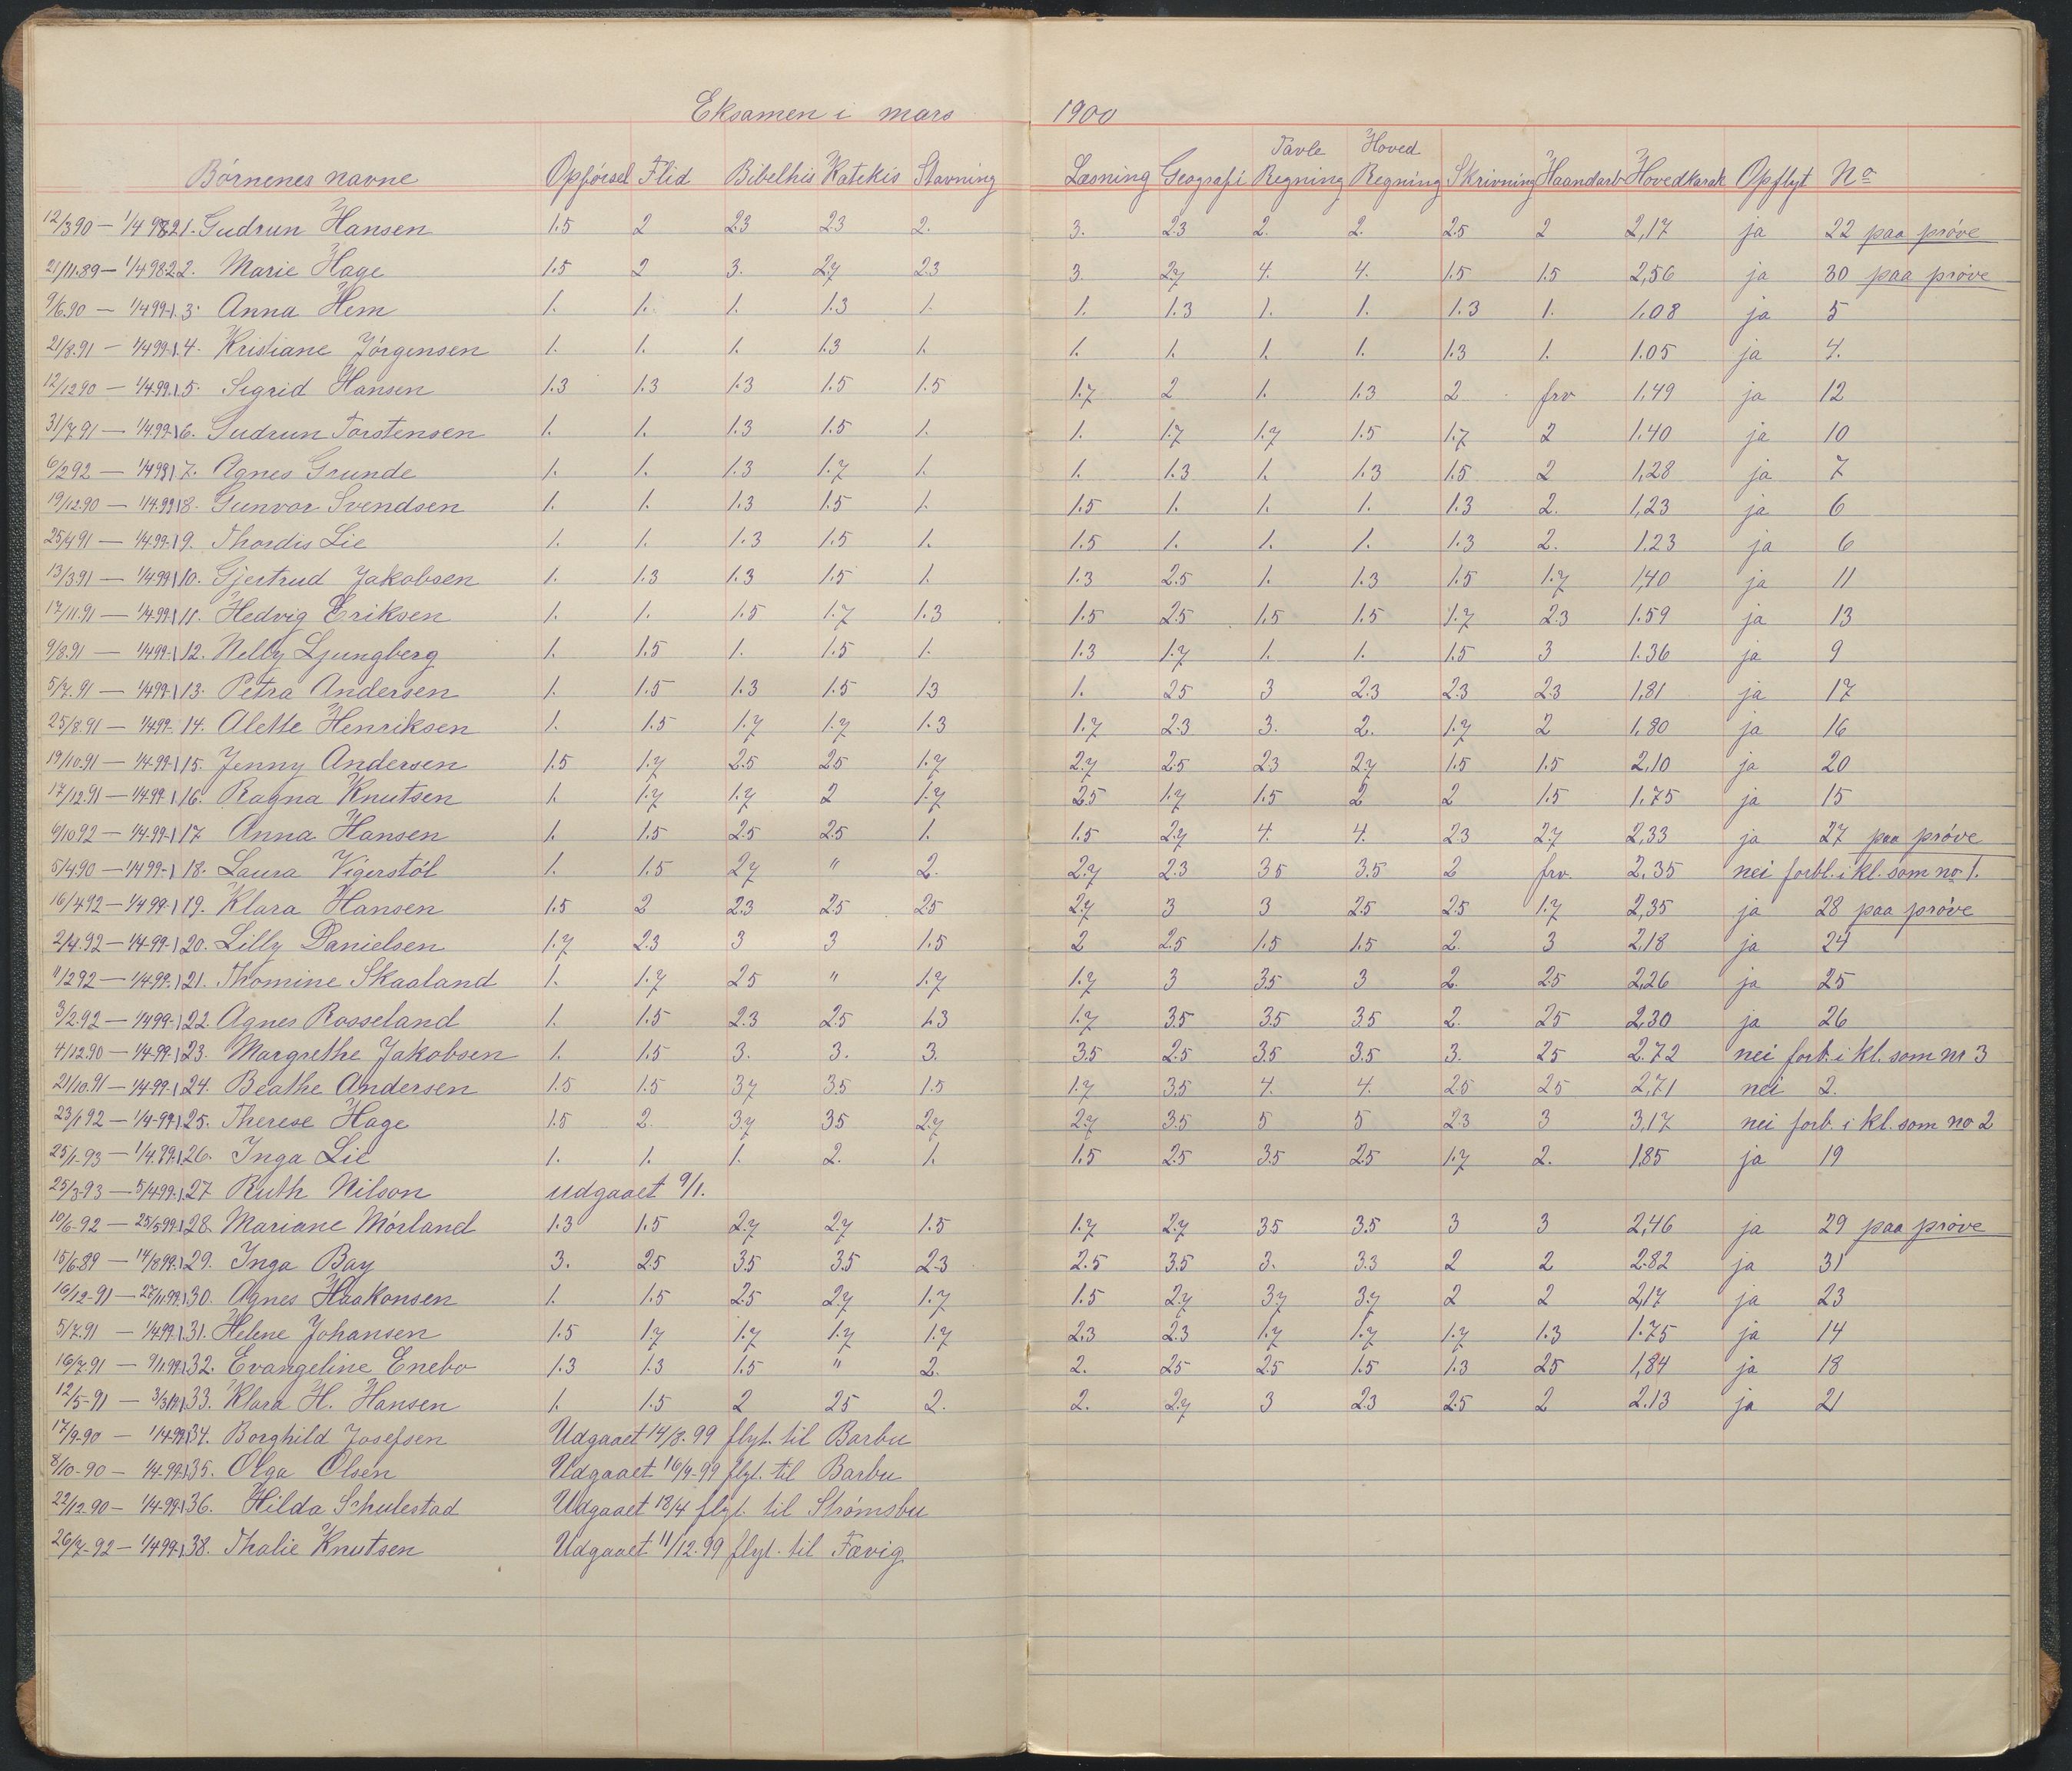 Eksamen i mars 1900
Børnenes navne Opførsel Flid Bibelhis Katekis Stavning Læsning Geografi Tavle Regning Hoved Regning Skrivning Haandarb Hovedkarak Opflyt No
12/3 90 — 1/4 98 2 1. Gudrun Hansen 1.5 2 2.3 2.3 2. 3. 2.3 2. 2. 2.5 2 2,17 ja 22 paa prøve
21/11.89 — 1/4 98 2 2. Marie Hage 1.5 2 3. 2.7 2.3 3. 2.7 4. 4. 1.5 1.5 2,56 ja 30 paa prøve
9/6.90 — 1/4 99-1. 3. Anna Hem 1. 1. 1. 1.3 1. 1. 1.3 1. 1. 1.3 1. 1.08 ja 5
21/8.91 — 1/4 99-1. 4. Kristiane Jørgensen 1. 1. 1. 1.3 1. 1. 1. 1. 1. 1.3 1. 1.05 ja 4.
12/12 90 — 1/4.99.1. 5. Sigrid Hansen 1.3 1.3 1.3 1.5 1.5 1.7 2 1. 1.3 2 frv 1,49 ja 12
31/7.91 — 1/4.99-1 6. Gudrun Torstensen 1. 1. 1.3 1.5 1. 1. 1.7 1.7 1.5 1.7 2 1.40 ja 10
6/2 92 — 1/4 99 1 7. Agnes Grunde 1. 1. 1.3 1.7 1. 1. 1.3 1. 1.3 1.5 2 1,28 ja 7
19/12.90 — 1/4.99 1 8. Gunvor Svendsen 1. 1. 1.3 1.5 1. 1.5 1. 1. 1. 1.3 2. 1,23 ja 6
25/4 91 — 1/4-99-1 9. Thordis Lie 1. 1. 1.3 1.5 1. 1.5 1. 1. 1. 1.3 2. 1.23 ja 6
13/3.91 — 1/4.99 1 10. Gjertrud Jakobsen 1. 1.3 1.3 1.5 1. 1.3 2.5 1. 1.3 1.5 1.7 1,40 ja 11
17/11.91 — 1/4-99 1 11. Hedvig Eriksen 1. 1. 1.5 1.7 1.3 1.5 2.5 1.5 1.5 1.7 2.3 1.59 ja 13
9/8.91 — 1/4 99-1 12. Nelly Ljungberg 1. 1.5 1. 1.5 1. 1.3 1.7 1. 1. 1.5 3 1.36 ja 9
5/7.91 — 1/4 99-1 13. Petra Andersen 1. 1.5 1.3 1.5 1.3 1. 2.5 3 2.3 2.3 2.3 1,81 ja 17
25/8.91 — 1/4 99- 14. Alette Henriksen 1. 1.5 1.7 1.7 1.3 1.7 2.3 3. 2. 1.7 2 1,80 ja 16
19/10.91 — 1/4-99-1 15. Jenny Andersen 1.5 1.7 2.5 2.5 1.7 2.7 2.5 2.3 2.7 1.5 1.5 2,10 ja 20
17/12.91 — 1/4 99 1 16. Ragna Knutsen 1. 1.7 1.7 2 1.7 2.5 1.7 1.5 2 2 1.5 1.75 ja 15
6/10 92 — 1/4.99-1 17 Anna Hansen 1. 1.5 2.5 2.5 1. 1.5 2.7 4. 4. 2.3 2.7 2,33 ja 27 paa prøve
5/4 90 — 1/4 99-1 18. Laura Vigerstøl 1. 1.5 2.7 " 2. 2.7 2.3 3.5 3.5 2 frv. 2,35 nei forbl. i kl. som no 1.
16/4 92 — 1/4 99-1 19. Klara Hansen 1.5 2 2.3 2.5 2.5 2.7 3 3 2.5 2.5 1.7 2,35 ja 28 paa prøve
2/4.92 — 1/4-99-1 20. Lilly Danielsen 1.7 2.3 3 3 1.5 2 2.5 1.5 1.5 2. 3 2,18 ja 24
11/2 92 — 1/4-99.1 21. Thomine Skaaland 1. 1.7 2.5 " 1.7 1.7 3 3.5 3 2. 2.5 2,26 ja 25
3/2.92 — 1/4 99-1 22. Agnes Rosseland 1. 1.5 2.3 2.5 1.3 1.7 3.5 3.5 3.5 2. 2.5 2,30 ja 26
4/12.90 — 1/4-99-1 23. Margrethe Jakobsen 1. 1.5 3. 3. 3. 3.5 2.5 3.5 3.5 3. 2.5 2.72 nei forb. i kl. som nr 3
21/10.91 — 1/4-99-1 24. Beathe Andersen 1.5 1.5 3.7 3.5 1.5 1.7 3.5 4. 4. 2.5 2.5 2,71 nei 2.
23/1 92 — 1/4-99 1 25. Therese Hage 1.5 2. 3.7 3.5 2.7 2.7 3.5 5 5 2.3 3 3,17 nei forb. i kl. som no 2
25/1-93 — 1/4.99.1 26. Inga Lie 1. 1. 1. 2. 1. 1.5 2.5 3.5 2.5 1.7 2. 1,85 ja 19
25/3-93 — 5/4 99.1. 27 Ruth Nilson udgaaet 9/1.
10/6-92 — 25/5 99.1 28. Mariane Mørland 1.3 1.5 2.7 2.7 1.5 1.7 2.7 3.5 3.5 3 3 2,46 ja 29 paa prøve
15/6.89 — 14/8 99.1 29. Inga Bay 3. 2.5 3.5 3.5 2.3 2.5 3.5 3. 3.3 2 2 2.82 ja 31
16/12-91 — 27/11.99.1 30. Agnes Haakonsen 1. 1.5 2.5 2.7 1.7 1.5 2.7 3.7 3.7 2 2 2,17 ja 23
5/7.91 — 1/4.99.1. 31. Helene Johansen 1.5 1.7 1.7 1.7 1.7 2.3 2.3 1.7 1.7 1.7 1.3 1.75 ja 14
16/7.91 — 9/1.99.1 32. Evangeline Enebo 1.3 1.3 1.5 " 2. 2. 2.5 2.5 1.5 1.3 2.5 1,84 ja 18
12/5-91 — 33. Klara H. Hansen 1. 1.5 2 2.5 2. 2. 2.7 3 2.3 2.5 2 2.13 ja 21
17/9-90 — 1/4-99 1 34. Borghild Josefsen Udgaaet 14/8.99 flyt. til Barbu
8/10-90 — 1/4-99 1 35. Olga Olsen Udgaaet 16/9-99 flyt. til Barbu
22/12.90 — 1/4-99-1 36. Hilda Schulestad Udgaaet 18/4 flyt. til Strømsbu
26/7-92 — 1/4 99-1. 38. Thalie Knutsen Udgaaet 11/12-99 flyt. til Fævig